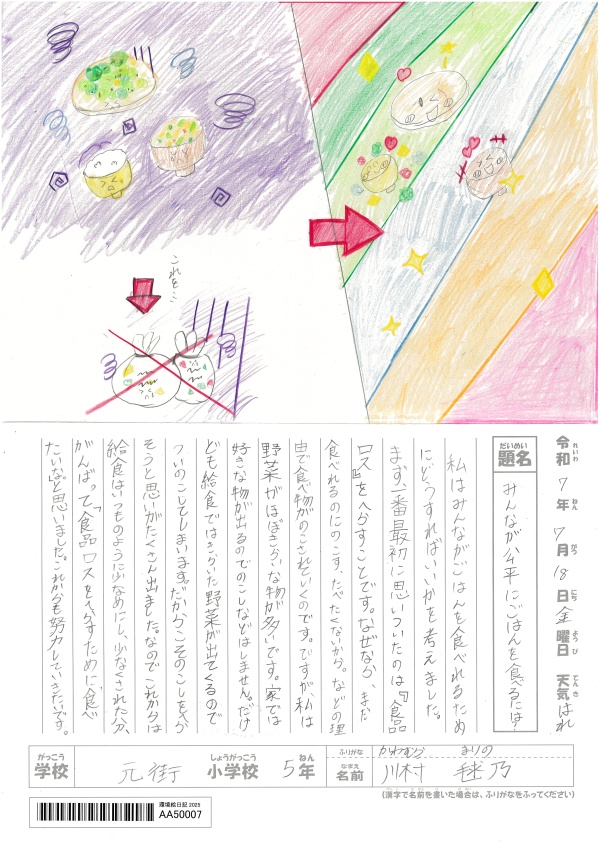 これをこ
令和7年7月18日金曜日 天気はれ
れいわ ねん がつ にち ようび てんき
だいめい
題名
みんなが公平にごはんを食べるには?
私はみんながごはんを食べれるため
にどうすればいいかを考えました。
まず、一番最初に思いついたのは『食品
ロス』をへらすことです。なぜなら、まだ
食べれるのにのこす、たべたくないから。などの理
由で食べ物がのこされていくのです。ですが、私は
野菜がほぼきらいな物が多いです。家では
好きな物が出るのでのこしなどはしません。だけ
ども給食ではきらいた野菜が出てくるので
ついのこしてしまいます。だからこそのこしをへら
そうと思いがたくさん出ました。なのでこれからは
給食はいつものように少なめにし、少なくされた分、
がんばって『食品ロスをへらすために』食べ
たいな。と思いました。これからも努力していきたいです。
がっこう しょうがっこう ねん ふりがな かわむら まりの
学校 元街 小学校 5年 なまえ 名前 川村 毬乃
(漢字で名前を書いた場合は、ふりがなをふってください)
環境絵日記 2025
AA50007